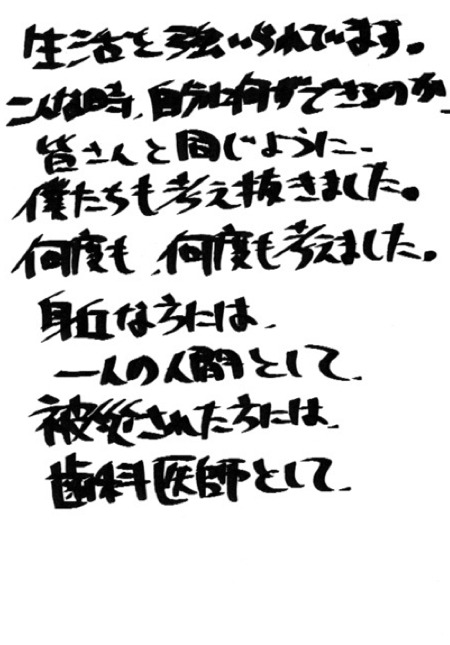 生活を強いられています。
こんな時、自分に何ができるのか、
皆さんと同じように、
僕たちも考え抜きました。
何度も、何度も考えました。
身近な方には、
一人の人間として、
被災された方には、
歯科医師として、